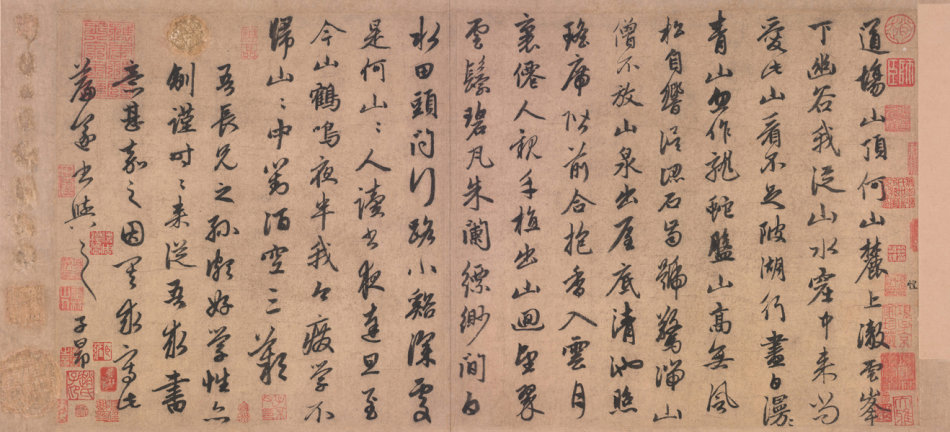 道場山頂何山麓上澈雲峯
下幽谷我從山水窟中来尚
愛此山看不足陂湖行盡白漫〻
青山忽作龍蛇盤山高無風
松自響誤認石齒號驚湍山
僧不放山泉出屋底清池照
瑤席階前合抱香入雲月
裏僊人親手植出山迴望翠
雲鬟碧瓦朱闌縹緲間白
水田頭問行路小谿深處
是何山〻人讀書夜達旦至
今山鶴鳴夜半我今廢學不
歸山〻中對酒空三歎
吾長兄之孫頗好学性亦
馴謹時〻来從吾求書
意甚嘉之因其求寫此
篇遂書與之 子昂